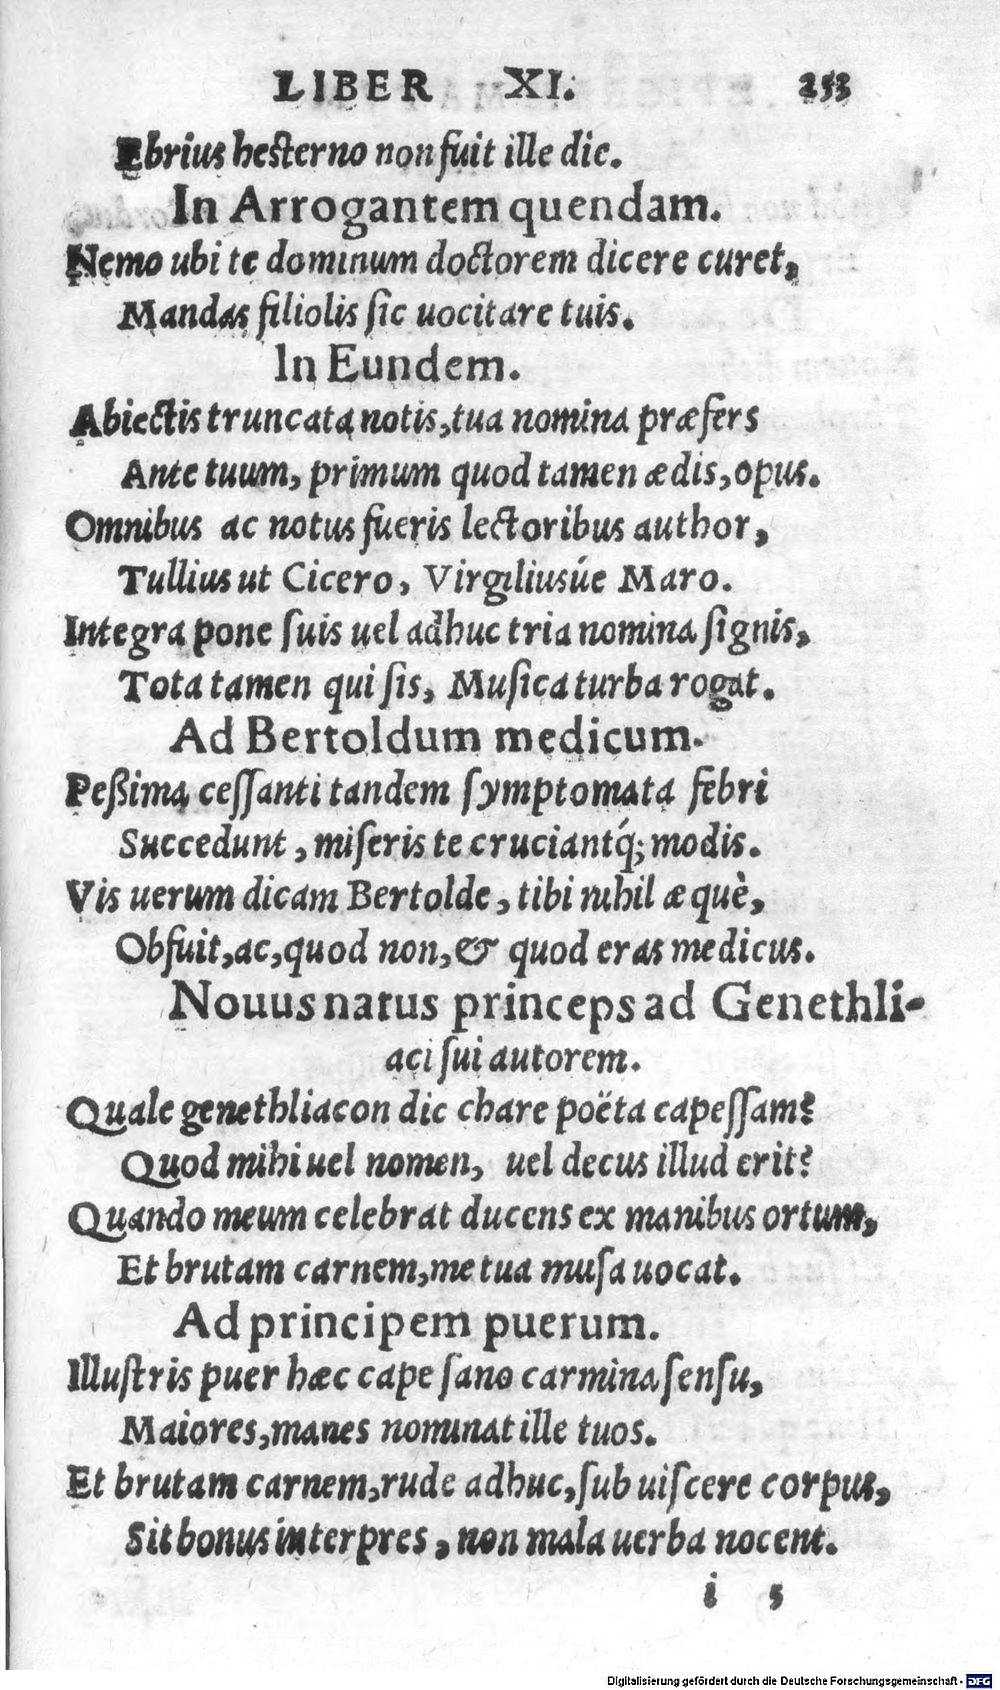 LIBER XI. 253
Ebrius hesterno non fuit ille die.
In Arrogantem quendam.
Nemo ubi te dominum doctorem dicere curet,
Mandas filiolis ſic uocitare tuis.
In Eundem.
Abiectis truncata notis, tua nomina præfers
Ante tuum, primum quod tamen ædis, opus.
Omnibus ac notus fueris lectoribus author,
Tullius ut Cicero, Virgiliusúe Maro.
Integra pone ſuis uel adhuc tria nomina ſignis,
Tota tamen qui ſis, Muſica turba rogat.
Ad Bertoldum medicum.
Peßima ceſſanti tandem ſymptomata febri
Succedunt, miſeris te cruciantq́; modis.
Vis uerum dicam Bertolde, tibi nihil æquè,
Obfuit, ac, quod non, & quod eras medicus.
Nouus natus princeps ad Genethli-
aci ſui autorem.
Quale genethliacon dic chare poëta capeſſam?
Quod mihi uel nomen, uel decus illud erit?
Quando meum celebrat ducens ex manibus ortum,
Et brutam carnem, me tua muſa uocat.
Ad principem puerum.
Illuſtris puer hæc cape ſano carmina ſenſu,
Maiores, manes nominat ille tuos.
Et brutam carnem, rude adhuc, ſub uiſcere corpus,
Sit bonus interpres, non mala uerba nocent.
i 5
Digitalisierung gefördert durch die Deutsche Forschungsgemeinschaft - DFG